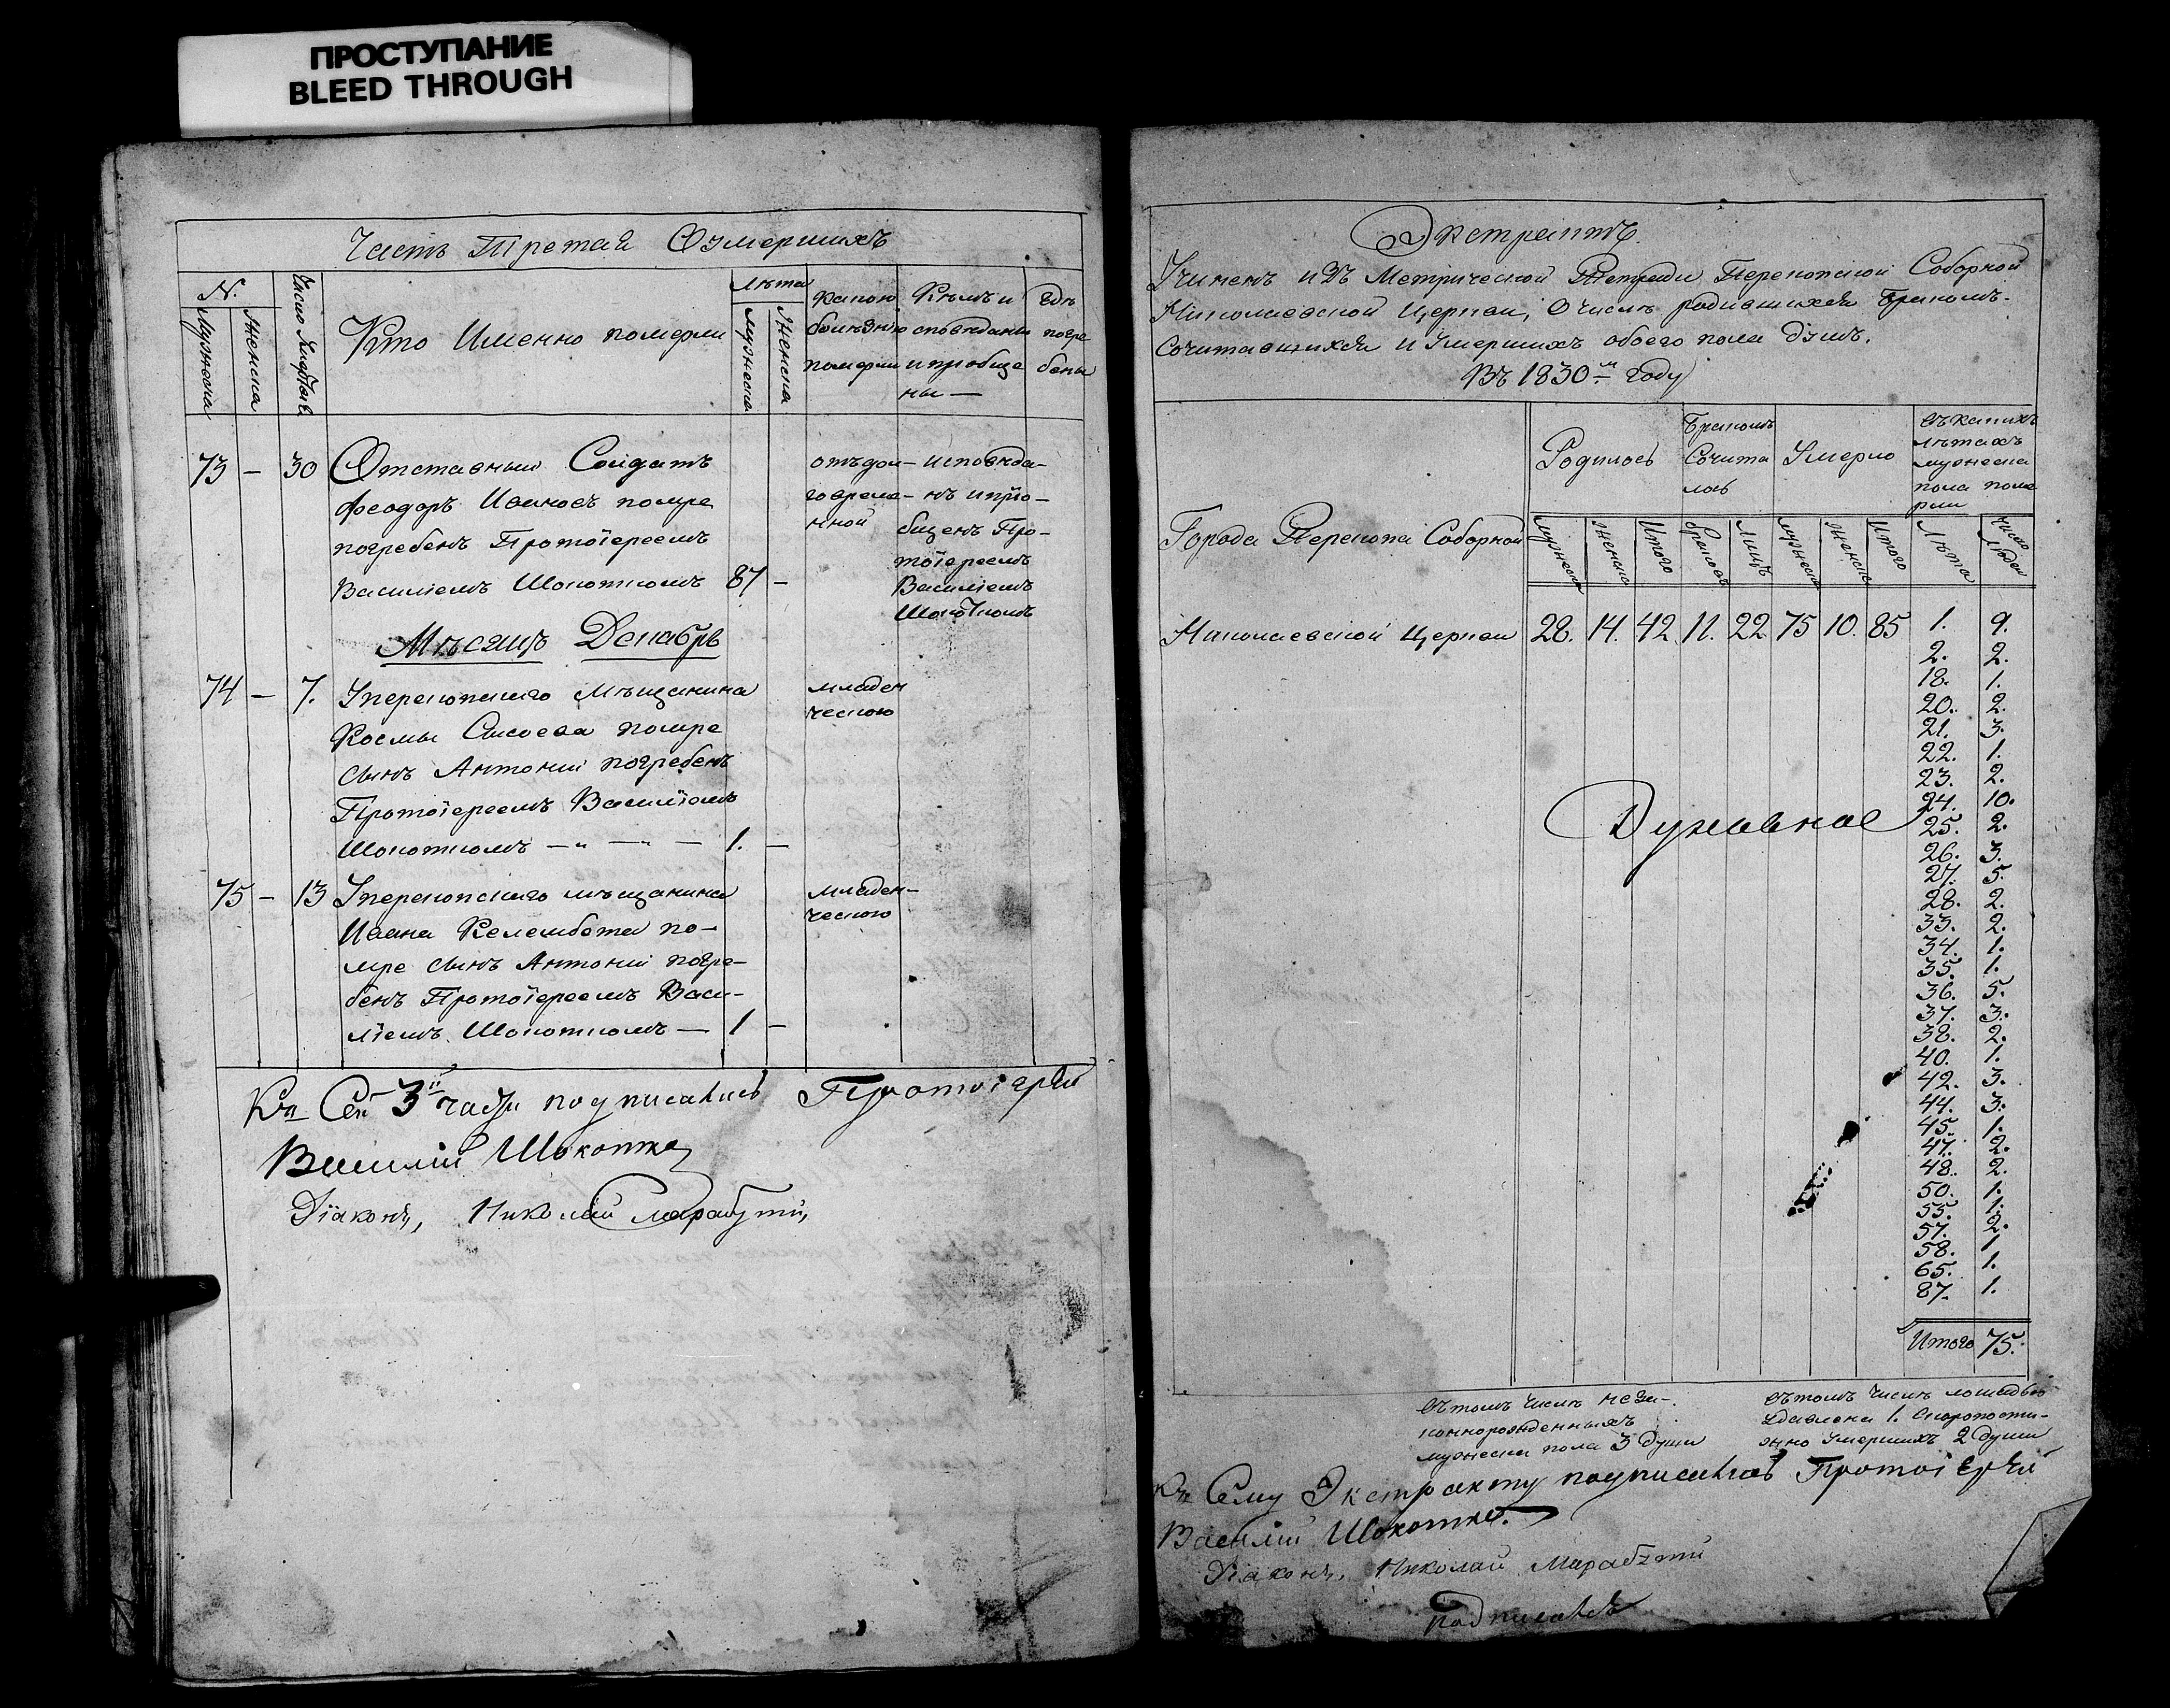 ПРОСТУПАНИЕ
BLEED THROUGH
Часть Третая Оумершихъ
N.
Мужеска
Женска
Число Мертвыхъ
Кто Именно померли
Лѣта
Мужеска
Женска
Какою
болѣзнію
померли
Кѣмъ и
сповѣданы
и приобще
ны —
Гдѣ
погре
бены
73 — 30 Отставный Солдатъ
Феодоръ Ивановъ помре
погребенъ Протоіереемъ
Василіемъ Шокоткомъ 87 —
отъ дол-
говреме-
нной
исповѣда-
нъ и прїо-
бщенъ Про-
тоіереемъ
Василіемъ
Шокоткомъ
Мѣсяцъ Декабрь
74 — 7. Уперекопскаго Мѣщанина
Космы Сысоева помре
сынъ Антоній погребенъ
Протоіереемъ Василіемъ
Шокоткомъ — „ — „ — 1. —
младен
ческою
75 — 13 Уперекопскаго мѣщанина
Ивана Келембета по-
мре сынъ Антоній погре-
бенъ Протоіереемъ Васи-
ліемъ Шокоткомъ — 1 —
младен-
ческою
Къ Сей 3й части подписались Протоіерей
Василій Шокотко
Діаконъ, Николай Марабути,
Экстрактъ
Учиненъ изъ Метрической Тетради Перекопской Соборной
Николаевской Церкви, О числѣ родившихся бракомъ-
Сочитавшихся и Умершихъ обоего пола душъ.
Въ 1830м Году
Родилось
Бракомъ
Сочита
лось
Умерло
Въ какихъ
лѣтахъ
мужеска
пола поме
рли
Города Перекопа Соборной
мужеска
женска
Итого
браковъ
Лицъ
мужеска
женска
Итого
Лѣта
число Людей
Николаевской Церкви 28. 14. 42 11. 22 75 10. 85 1. 9.
2. 2.
18. 1.
20. 2.
21. 3.
22. 1.
23. 2.
24. 10.
Духовное
25. 2.
26. 3.
27. 5.
28. 2.
33. 2.
34. 1.
35. 1.
36. 5.
37. 3.
38. 2.
40. 1.
42. 3.
44. 3.
45. 1.
47. 2.
48. 2.
50. 1.
55. 1.
57. 2.
58. 1
65. 1.
87. 1.
Итого 75.
Въ томъ числѣ неза-
коннорожденныхъ
мужеска пола 3 души
Въ томъ числѣ лошадью
удавлена 1. Скоропости-
жно умершихъ 2 души
Къ Сему Экстракту подписались Протоіерей
Василій Шокотко.
Діаконъ, Николай Марабути
подписалсь